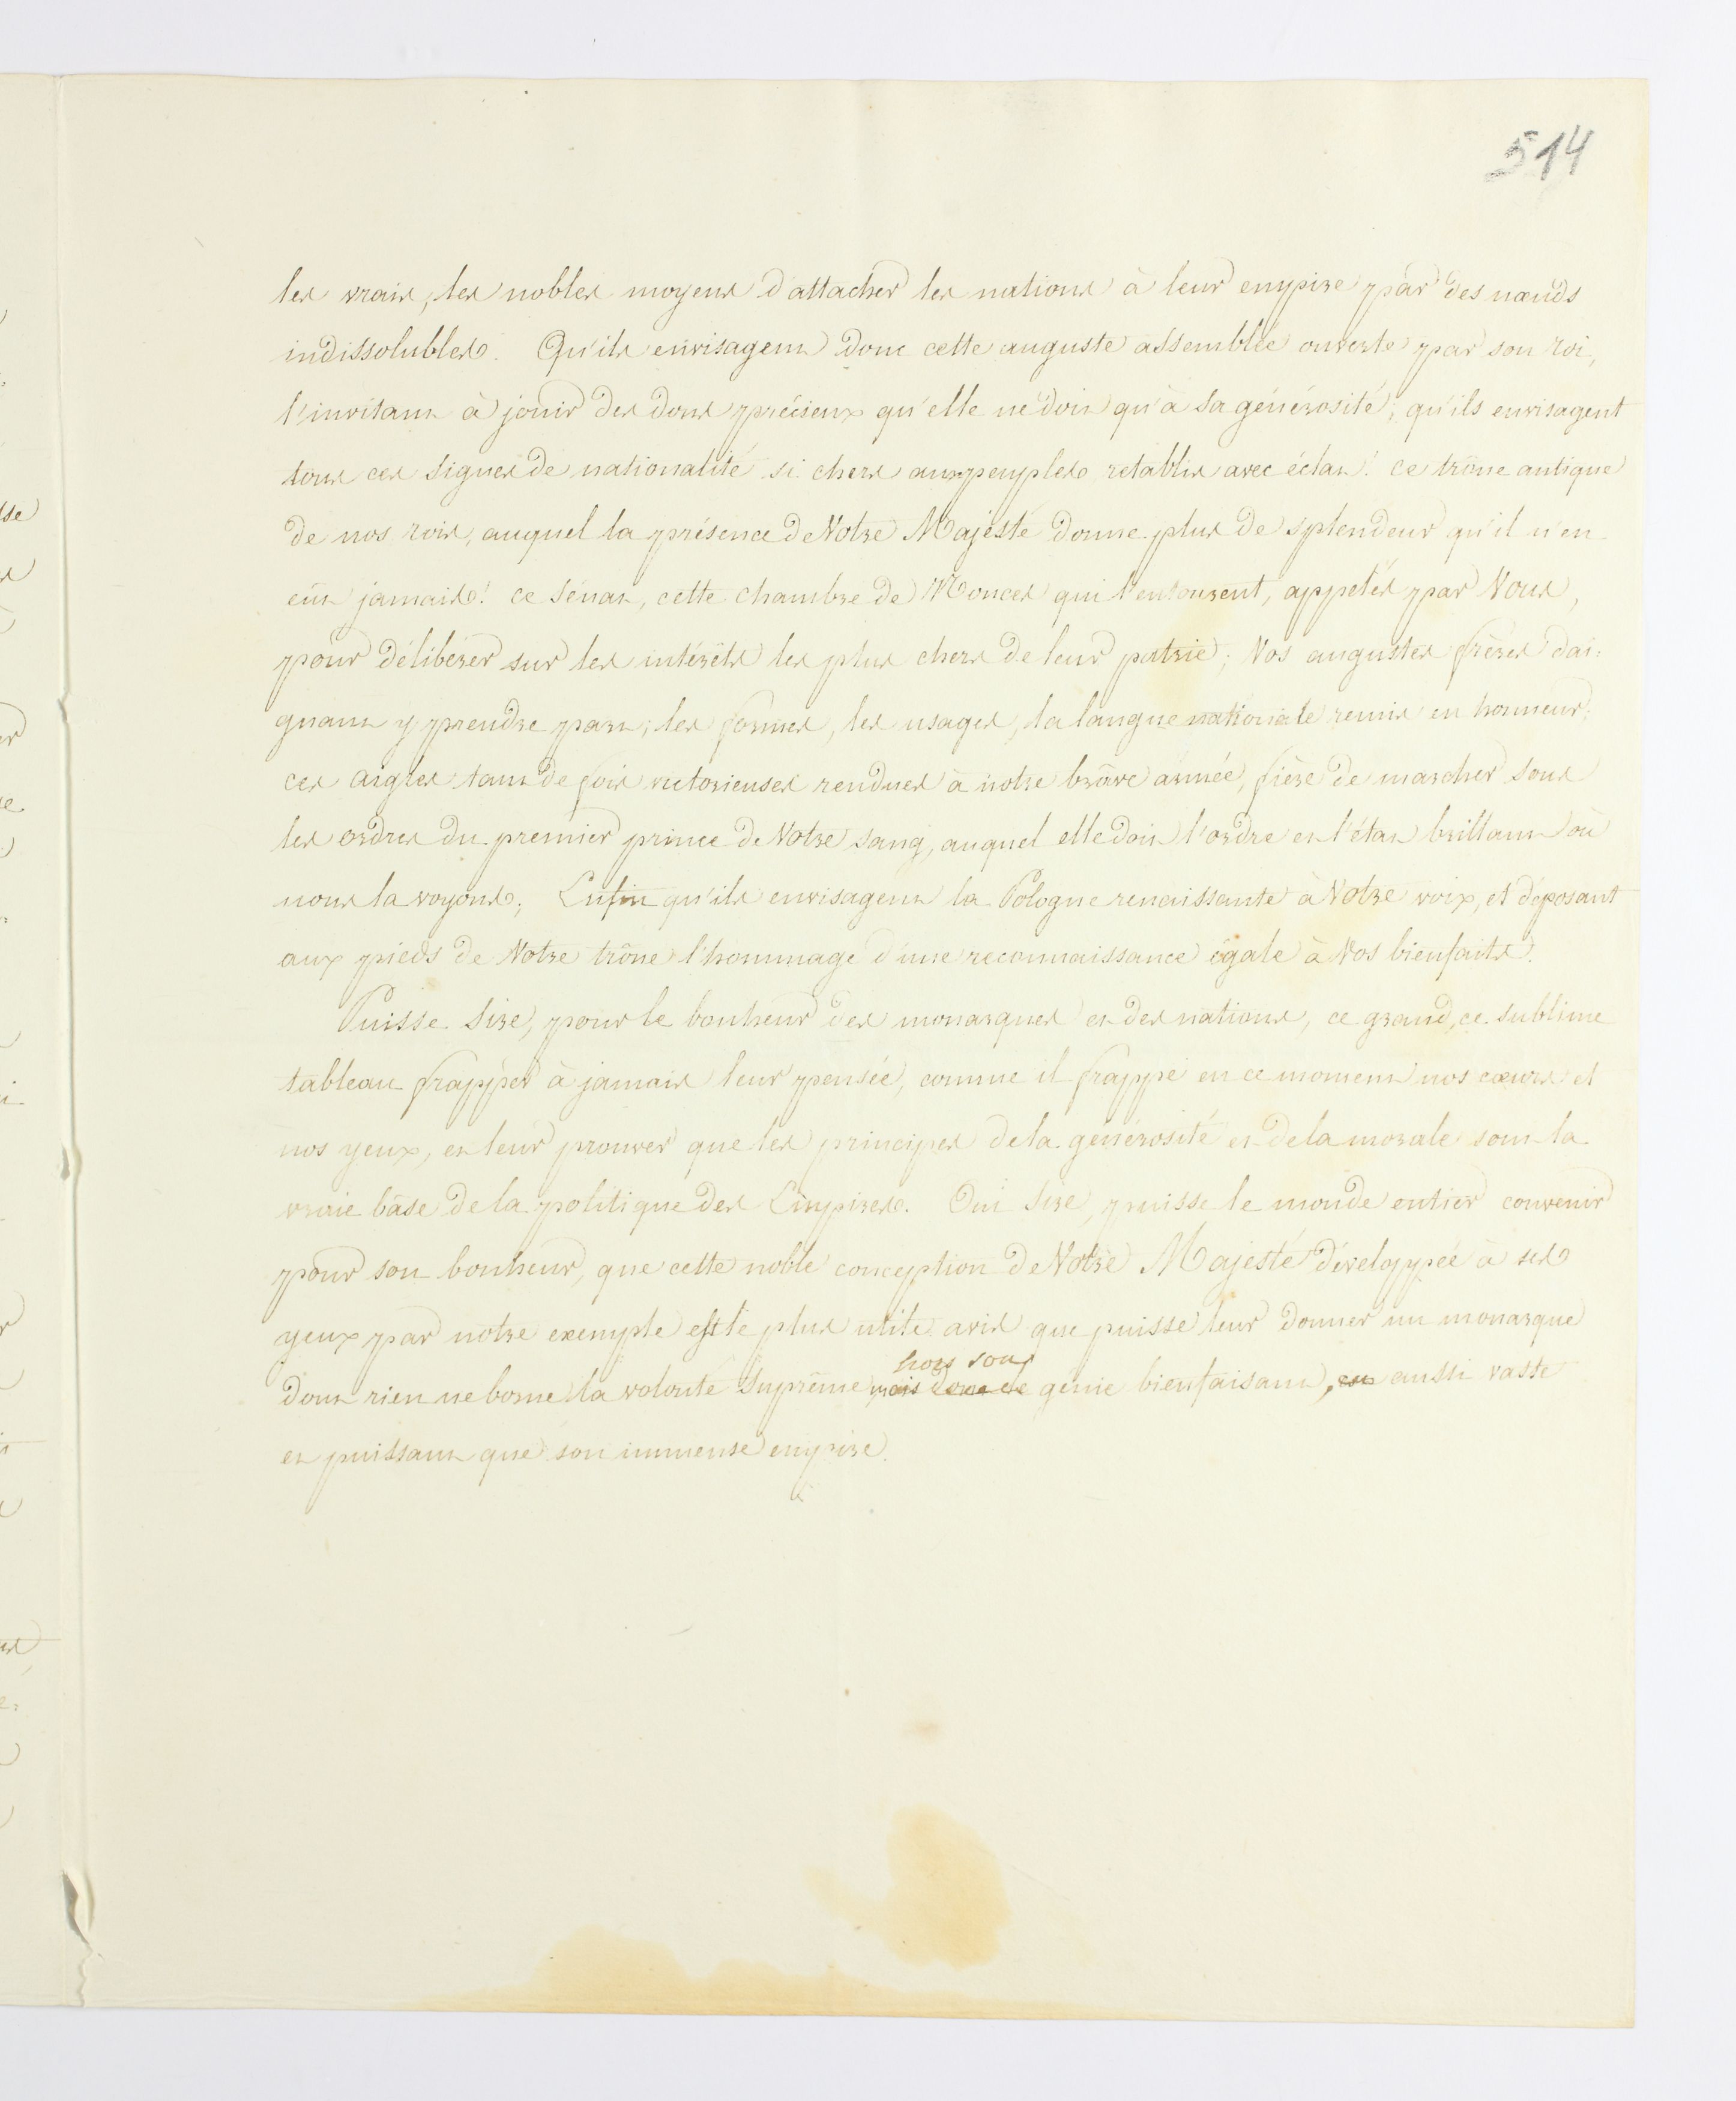 514
les vrais, les nobles moyens d'attacher les nations à leur empire par des nœuds
indissolubles. Qu'ils envisagent donc cette auguste assemblée ouverte par son roi,
l'invitant à jouir des dons précieux qu'elle ne doit qu'à sa générosité; qu'ils envisagent
tous ces signes de nationalité si chers aux peuples retablis avec éclat! ce trône antique
de nos rois, auquel la présence de Notre Majesté donne plus de splendeur qu'il n'en
eût jamais! ce sénat, cette chambre de Nonces qui l'entourent, appelés par Vous,
pour délibérer sur les intérêts les plus chers de leur patrie; Vos augustes frères dai-
gnant y prendre part; les formes, les usages, la langue nationale remis en honneur;
ces aigles tant de fois victorieuses rendues à notre brâve armée, fière de marcher sous
les ordres du premier prince de Votre sang, auquel elle doit l'ordre et l'état brillant où
nous la voyons; Enfin qu'ils envisagent la Pologne renaissante à Votre voix, et déposant
aux pieds de Votre trône l'hommage d'une reconnaissance égale à Vos bienfaits.
Puisse Sire, pour le bonheur des monarques et des nations, ce grand, ce sublime
tableau frapper à jamais leur pensée, comme il frappe en ce moment nos cœurs et
nos yeux, et leur prouver que les principes de la générosité et de la morale sont la
vraie bâse de la politique des Empires. Oui Sire, puisse le monde entier convenir
pour son bonheur, que cette noble conception de Votre Majesté développée à ses
yeux par notre exemple est le plus utile avis que puisse leur donner un monarque
hors son
dont rien ne borne la volonté suprême mais doué de génie bienfaisant, et aussi vaste
et puissant que son immense empire.